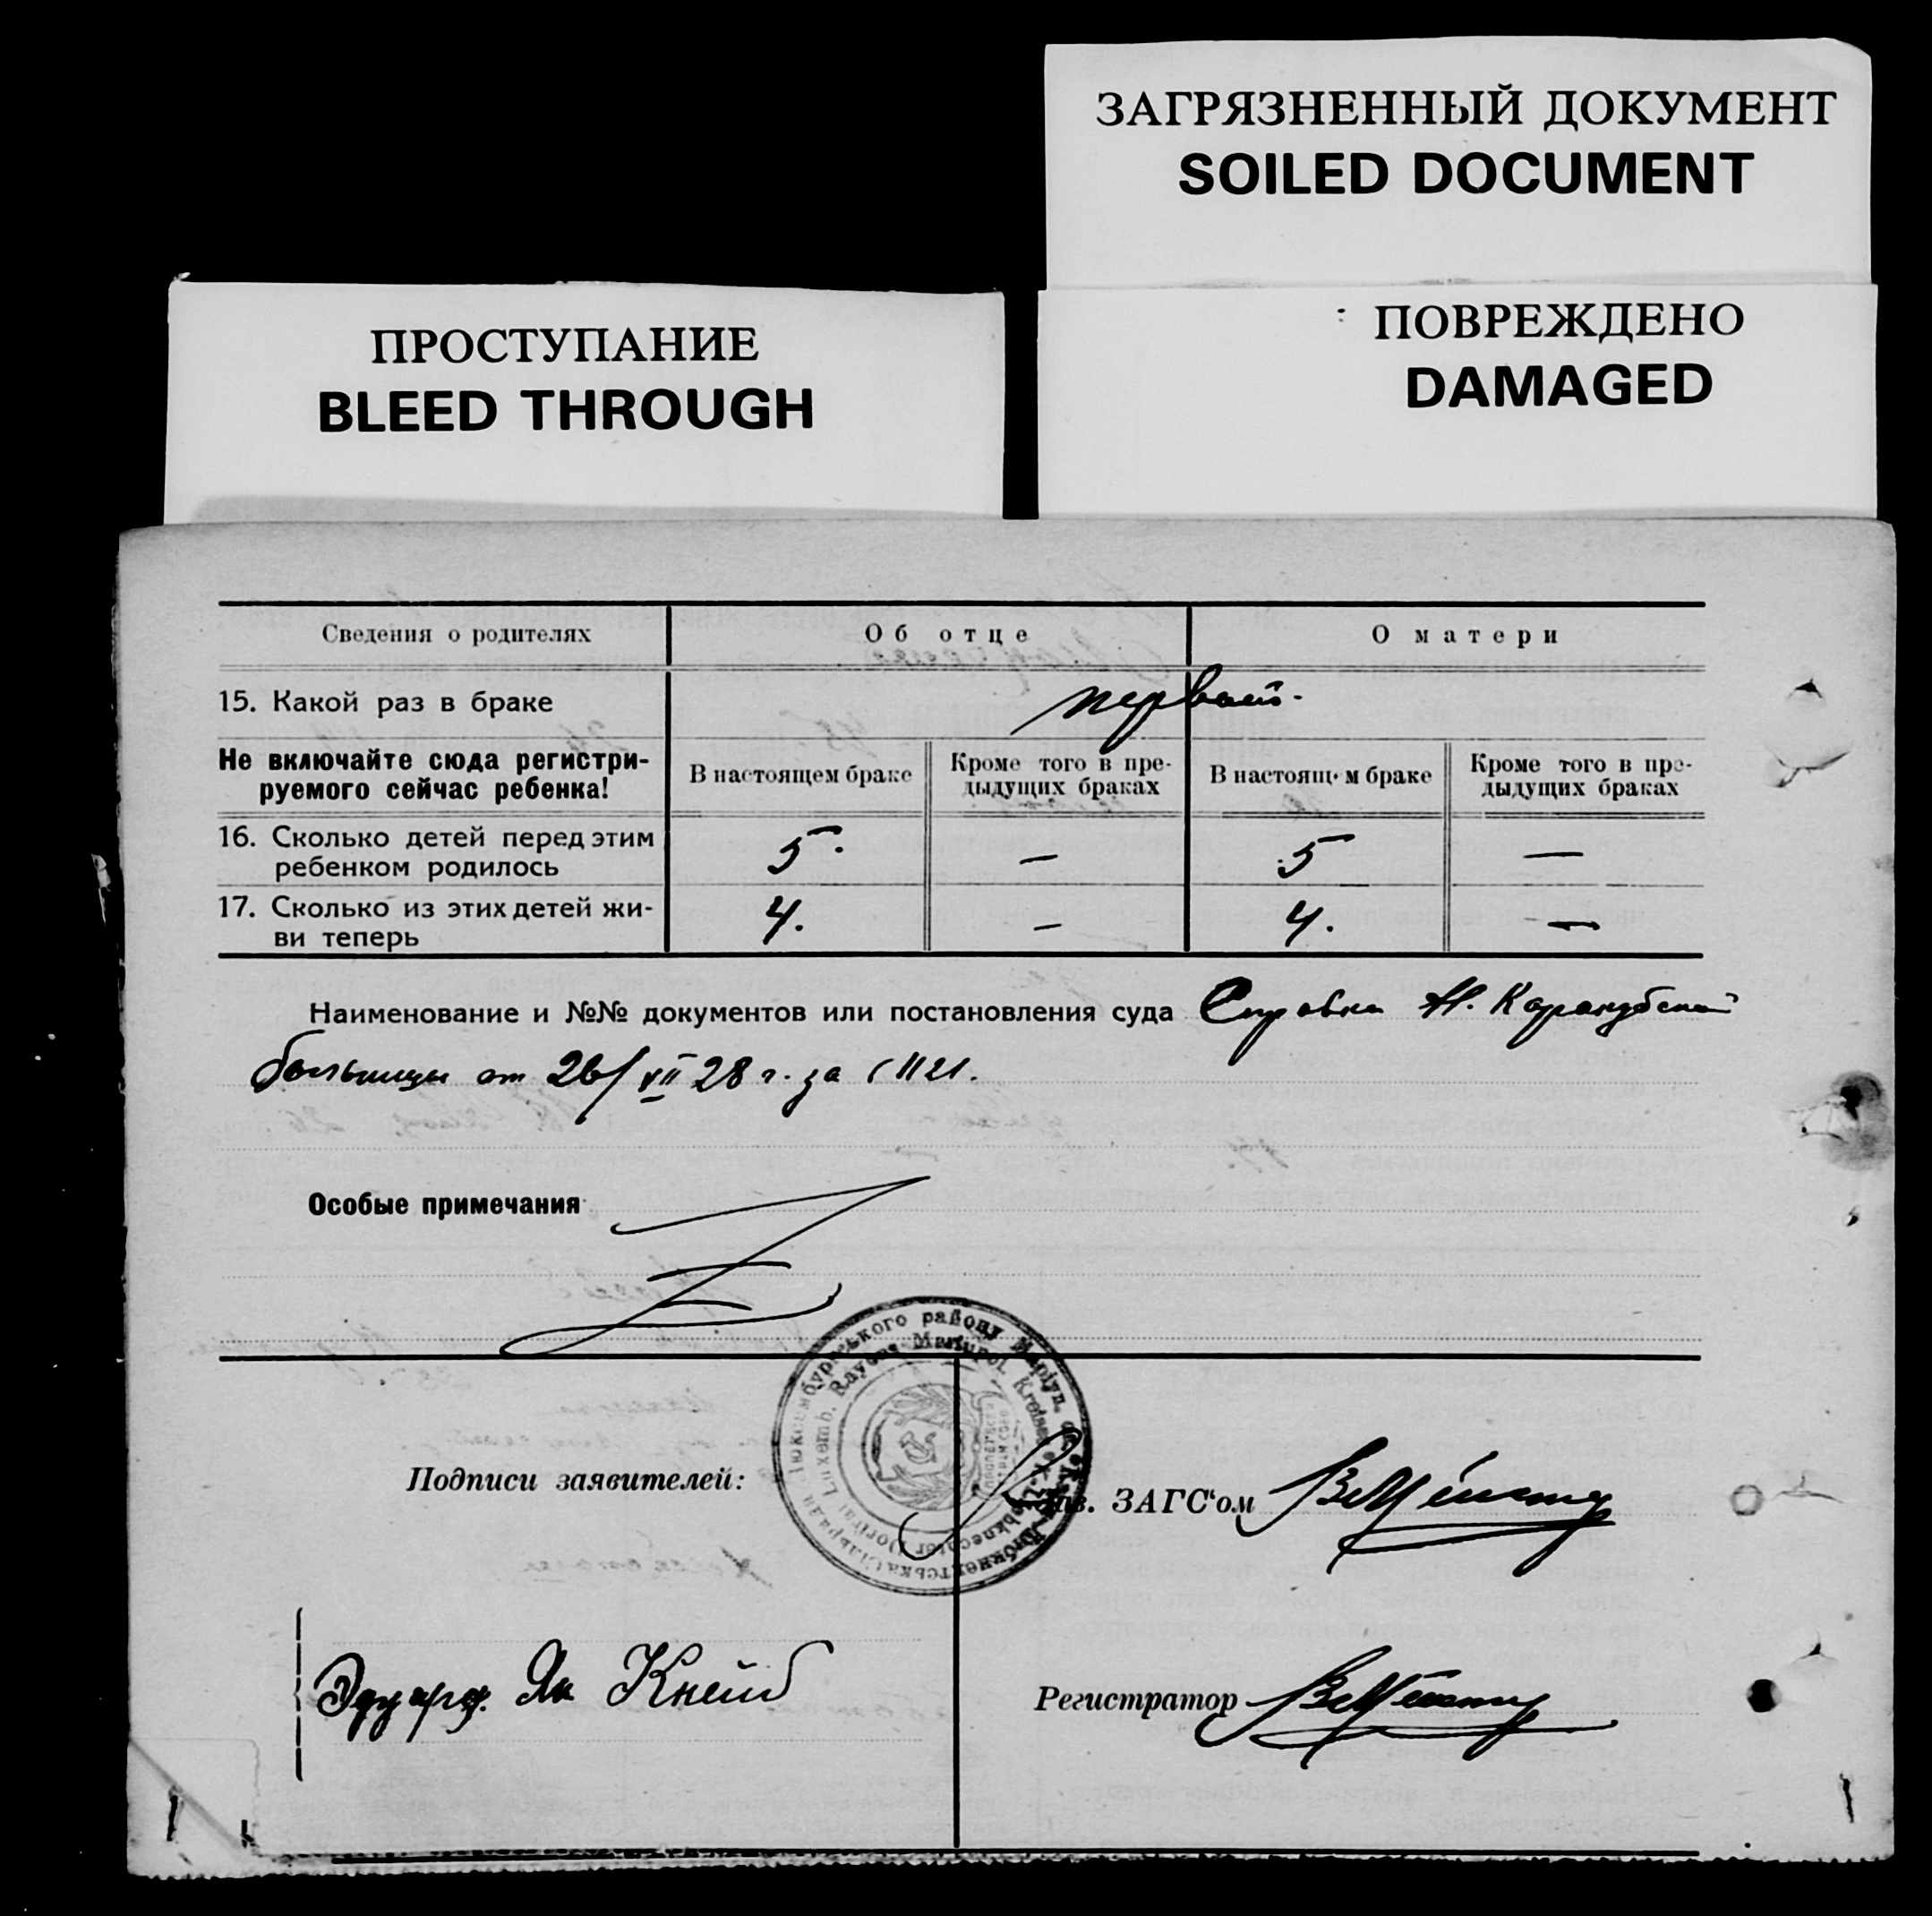 ЗАГРЯЗНЕННЫЙ ДОКУМЕНТ
SOILED DOCUMENT
ПРОСТУПАНИЕ
BLEED THROUGH
ПОВРЕЖДЕНО
DAMAGED
Сведения о родителях Об отце О матери
15. Какой раз в браке первый.
Не включайте сюда регистри-
руемого сейчас ребенка!
В настоящем браке
Кроме того в пре-
дыдущих браках
В настоящем браке
Кроме того в пре-
дыдущих браках
16. Сколько детей перед этим
ребенком родилось 5. — 5 —
17. Сколько из этих детей жи-
ви теперь 4. — 4. —
Наименование и №№ документов или постановления суда Справка Н.
больницы от 26/XII 28 г. за
Особые примечания
Люксембургського району Маріуп.
Luxemb. Rayons Mariupol. Kreises
Подписи заявителей:
Зав. ЗАГС‘ом
Эдуард Як Кнейб
Регистратор